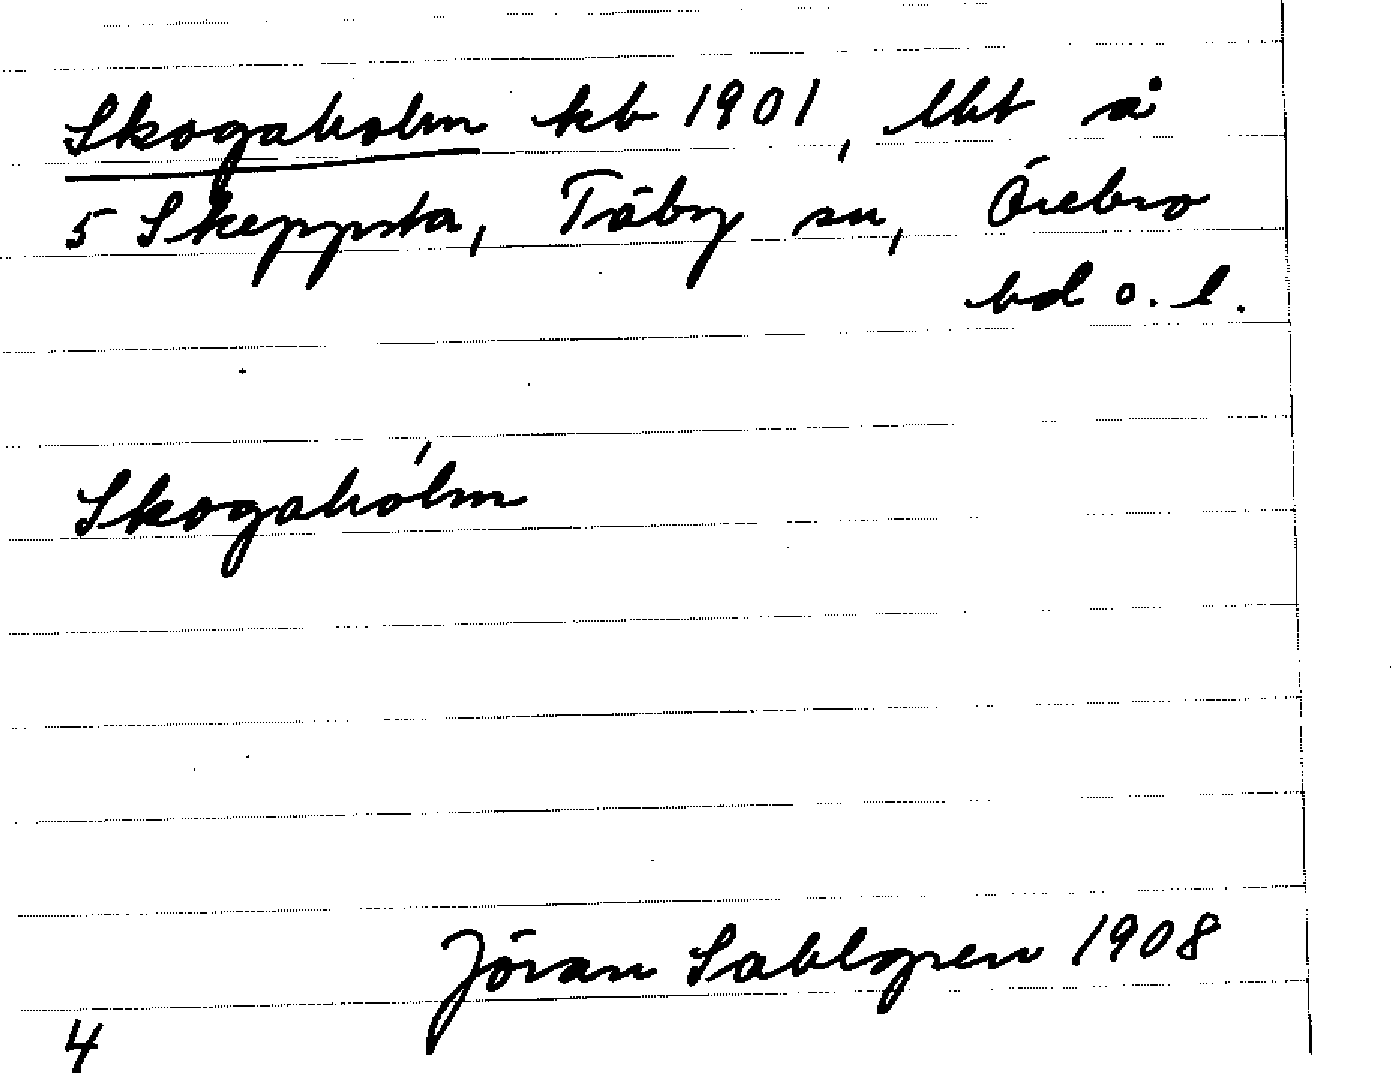 Skogaholm kb 1901, lht å
5 Skeppsta, Täby sn, Örebro
hd o. l.
Skogahólm
Jöran Sahlgren 1908
4